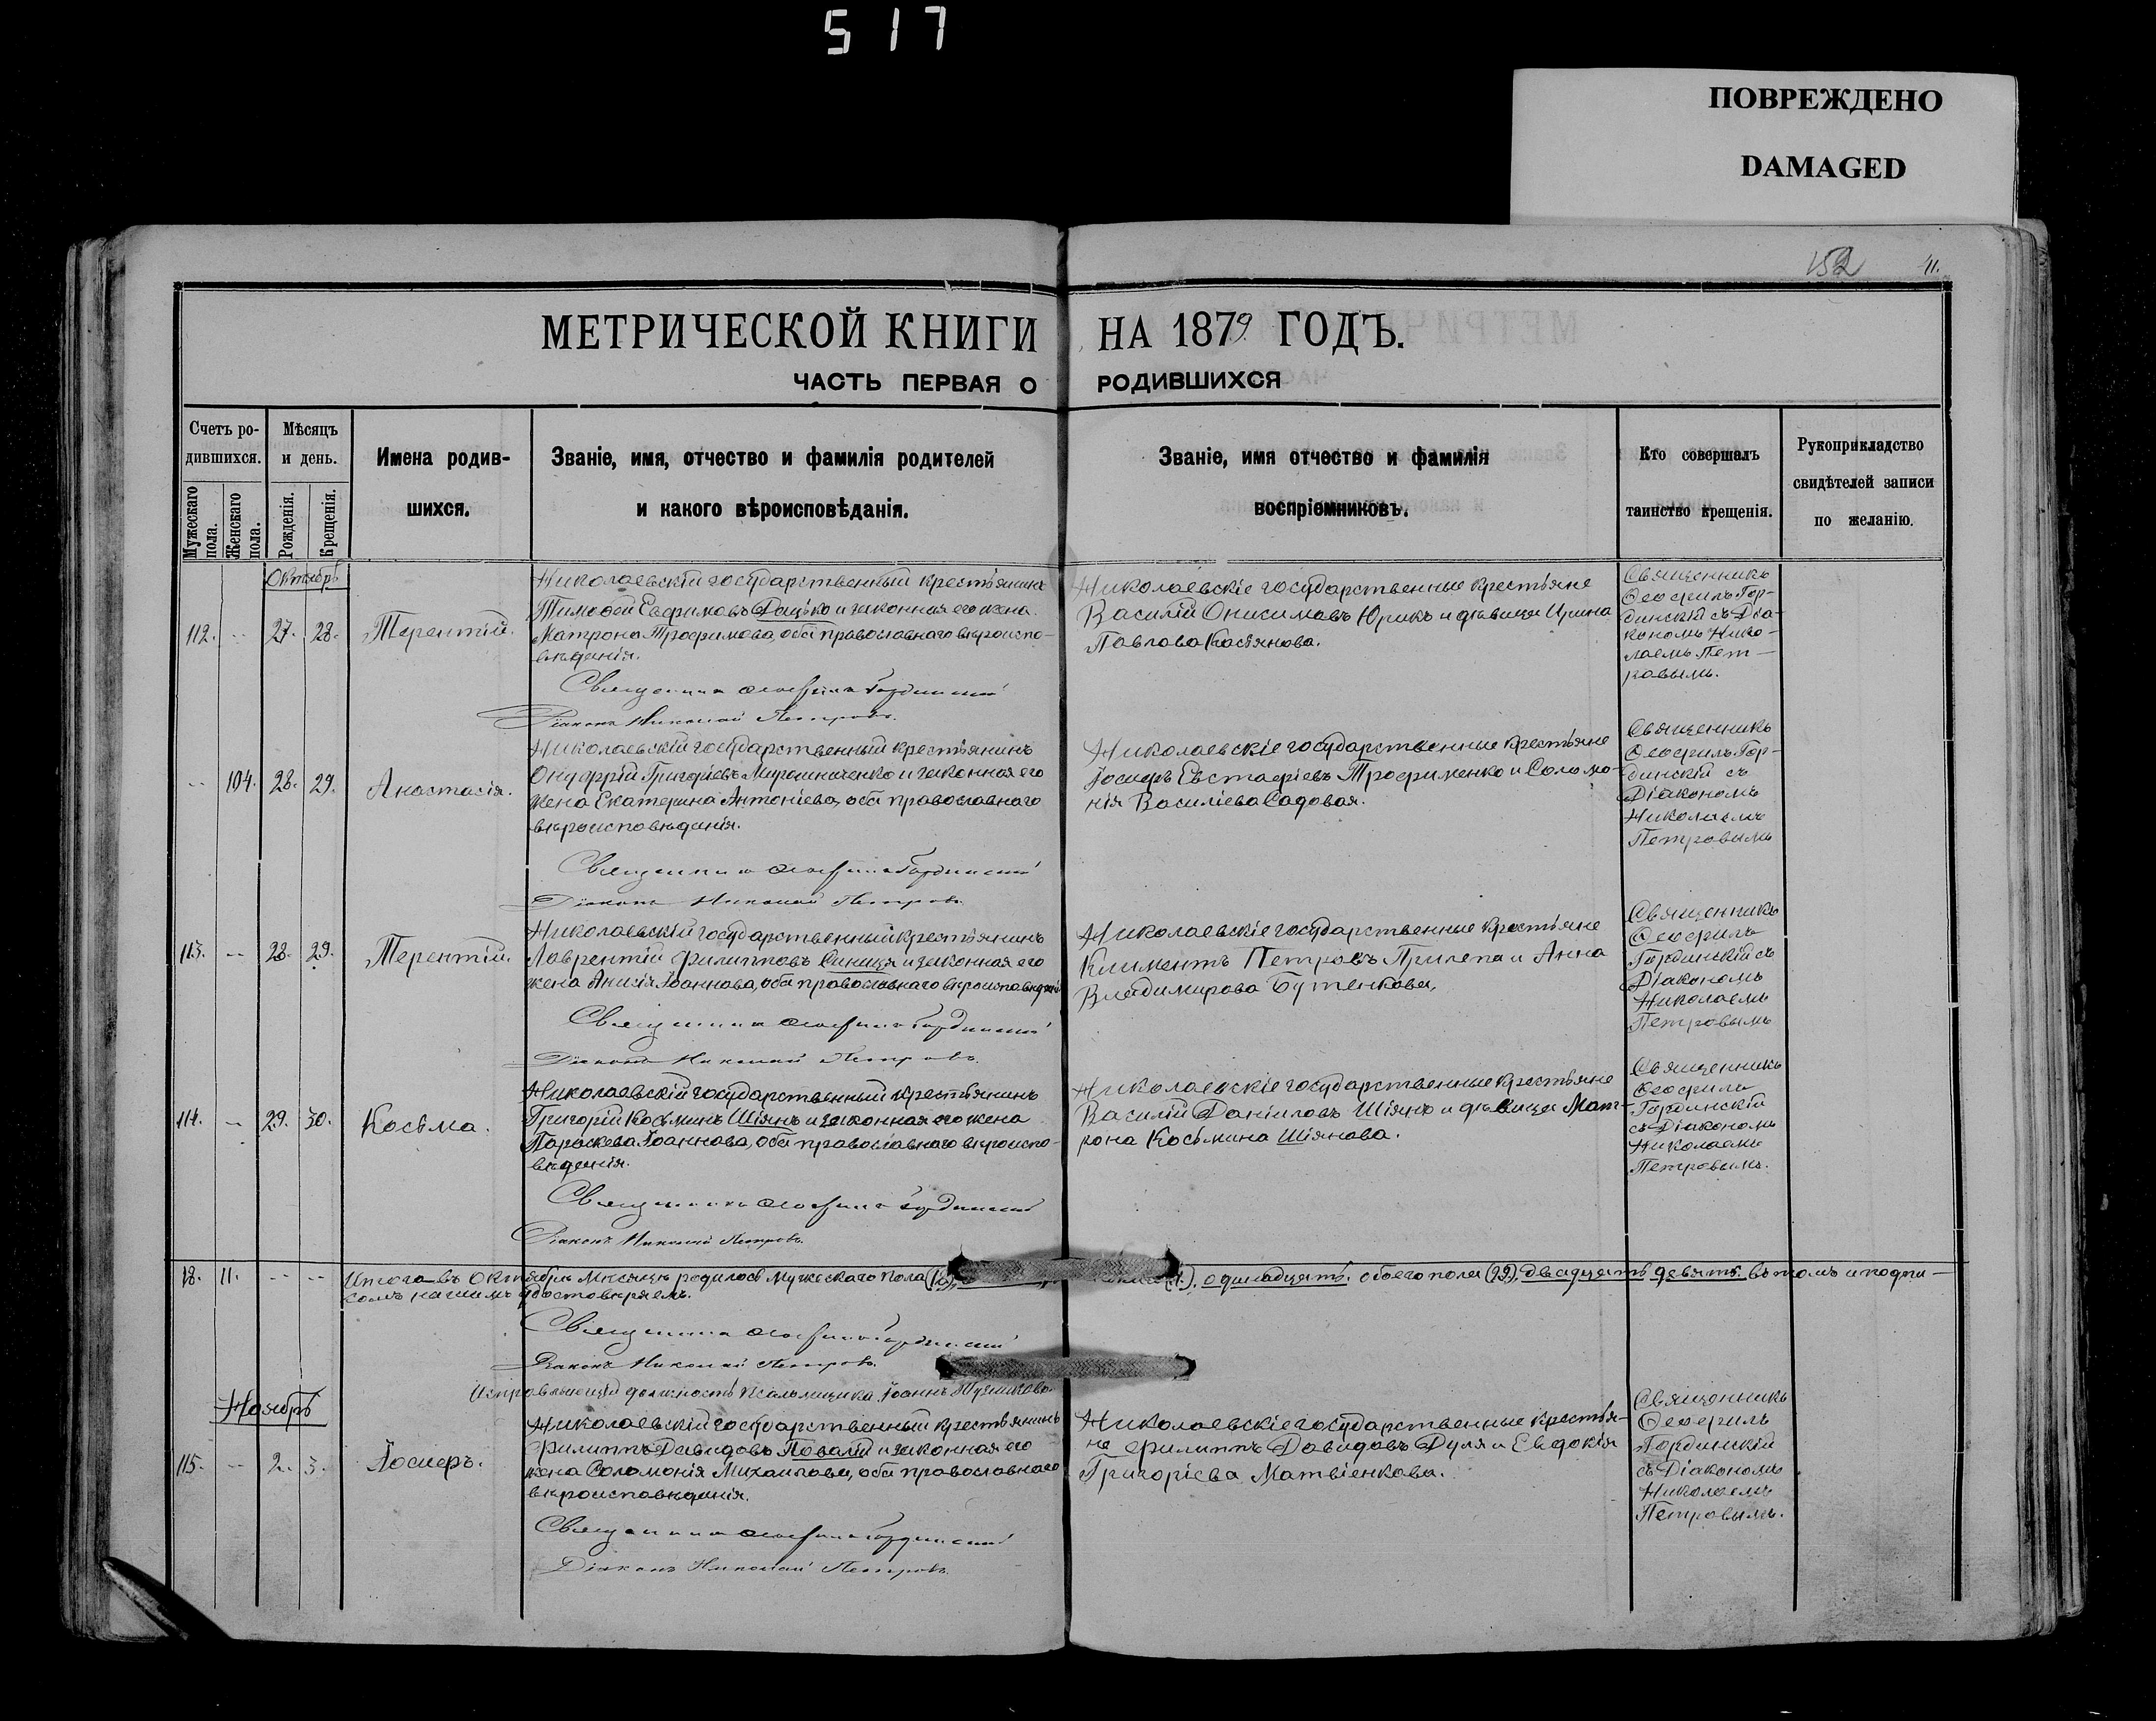 517
ПОВРЕЖДЕНО
DAMAGED
152
41.
МЕТРИЧЕСКОЙ КНИГИ НА 1879 ГОДЪ.
ЧАСТЬ ПЕРВАЯ О РОДИВШИХСЯ
Счетъ ро-
дившихся.
Мужескаго пола.
Женскаго пола.
Мѣсяцъ
и день.
Рожденія.
Крещенія.
Имена родив-
шихся.
Званіе, имя, отчество и фамилія родителей
и какого вѣроисповѣданія.
Званіе, имя отчество и фамилія
воспріемниковъ.
Кто совершалъ
таинство крещенія.
Рукоприкладство
свидѣтелей записи
по желанію.
Октябрь
112. -- 27. 28. Терентій.
Николаевскій государственный крестьянинъ
Тимофей Евфимовъ Дацько и законная его жена
Матрона Трофимова, оба православнаго вѣроиспо-
вѣданія.
Николаевскіе государственные крестьяне
Василій Онисимовъ Юрикъ и дѣвица Ирина
Павлова Касьянова.
Священникъ
Ѳеофилъ Гор-
динскій съ Діа-
кономъ Нико-
лаемъ Пет-
ровымъ.
Священникъ Ѳеофилъ Гординскій
Діаконъ Николай Петровъ.
-- 104. 28. 29. Анастасія.
Николаевскій государственный крестьянинъ
Онуфрій Григоріевъ Мирошниченко и законная его
жена Екатерина Антоніева, оба православнаго
вѣроисповѣданія.
Николаевскіе государственные крестьяне
Іосифъ Евстафіевъ Трофименко и Соломо-
нія Василіева Садовая.
Священникъ
Ѳеофилъ Гор-
динскій съ
Діакономъ
Николаемъ
Петровымъ
Священникъ Ѳеофилъ Гординскій
Діаконъ Николай Петровъ.
113. -- 28. 29. Терентій.
Николаевскій государственный крестьянинъ
Лаврентій Филипповъ Синиця и законная его
жена Анисія Іоаннова, оба православнаго вѣроисповѣданія
Николаевскіе государственные крестьяне
Климентъ Петровъ Прилепа и Анна
Владимирова Бутенкова,
Священникъ
Ѳеофилъ
Гординскій съ
Діакономъ
Николаемъ
Петровымъ
Священникъ Ѳеофилъ Гординскій
Діаконъ Николай Петровъ.
114. -- 29. 30. Косьма.
Николаевскій государственный крестьянинъ
Григорій Косьминъ Шіянъ и законная его жена
Параскева Іоаннова, оба православнаго вѣроиспо-
вѣданія.
Николаевскіе государственные крестьяне
Василій Даніиловъ Шіянъ и дѣвица Мат-
рона Косьмина Шіянова.
Священникъ
Ѳеофилъ
Гординскій
съ Діакономъ
Николаемъ
Петровымъ.
Священникъ Ѳеофилъ Гординскій
Діаконъ Николай Петровъ.
18. 11. -- -- Итого въ Октябрѣ мѣсяцѣ родилось мужескаго пола одинадцать. обоего пола (29). двадцать девять. въ томъ и подпи-
сомъ нашимъ удостовѣряемъ.
Священникъ Ѳеофилъ Гординскій
Діаконъ Николай Петровъ.
Исправляющій должность псаломщика Іоаннъ
Ноябрь
115. -- 2. 3. Іосифъ.
Николаевскій государственный крестьянинъ
Филиппъ Давидовъ Повалій и законная его
жена Соломонія Михаилова, оба православнаго
вѣроисповѣданія.
Николаевскіе государственные крестья-
не Филиппъ Давидовъ Дуля и Евдокія
Григоріева Матвіенкова.
Священникъ
Ѳеофилъ
Гординскій
съ Діакономъ
Николаемъ
Петровымъ.
Священникъ Ѳеофилъ Гординскій
Діаконъ Николай Петровъ.